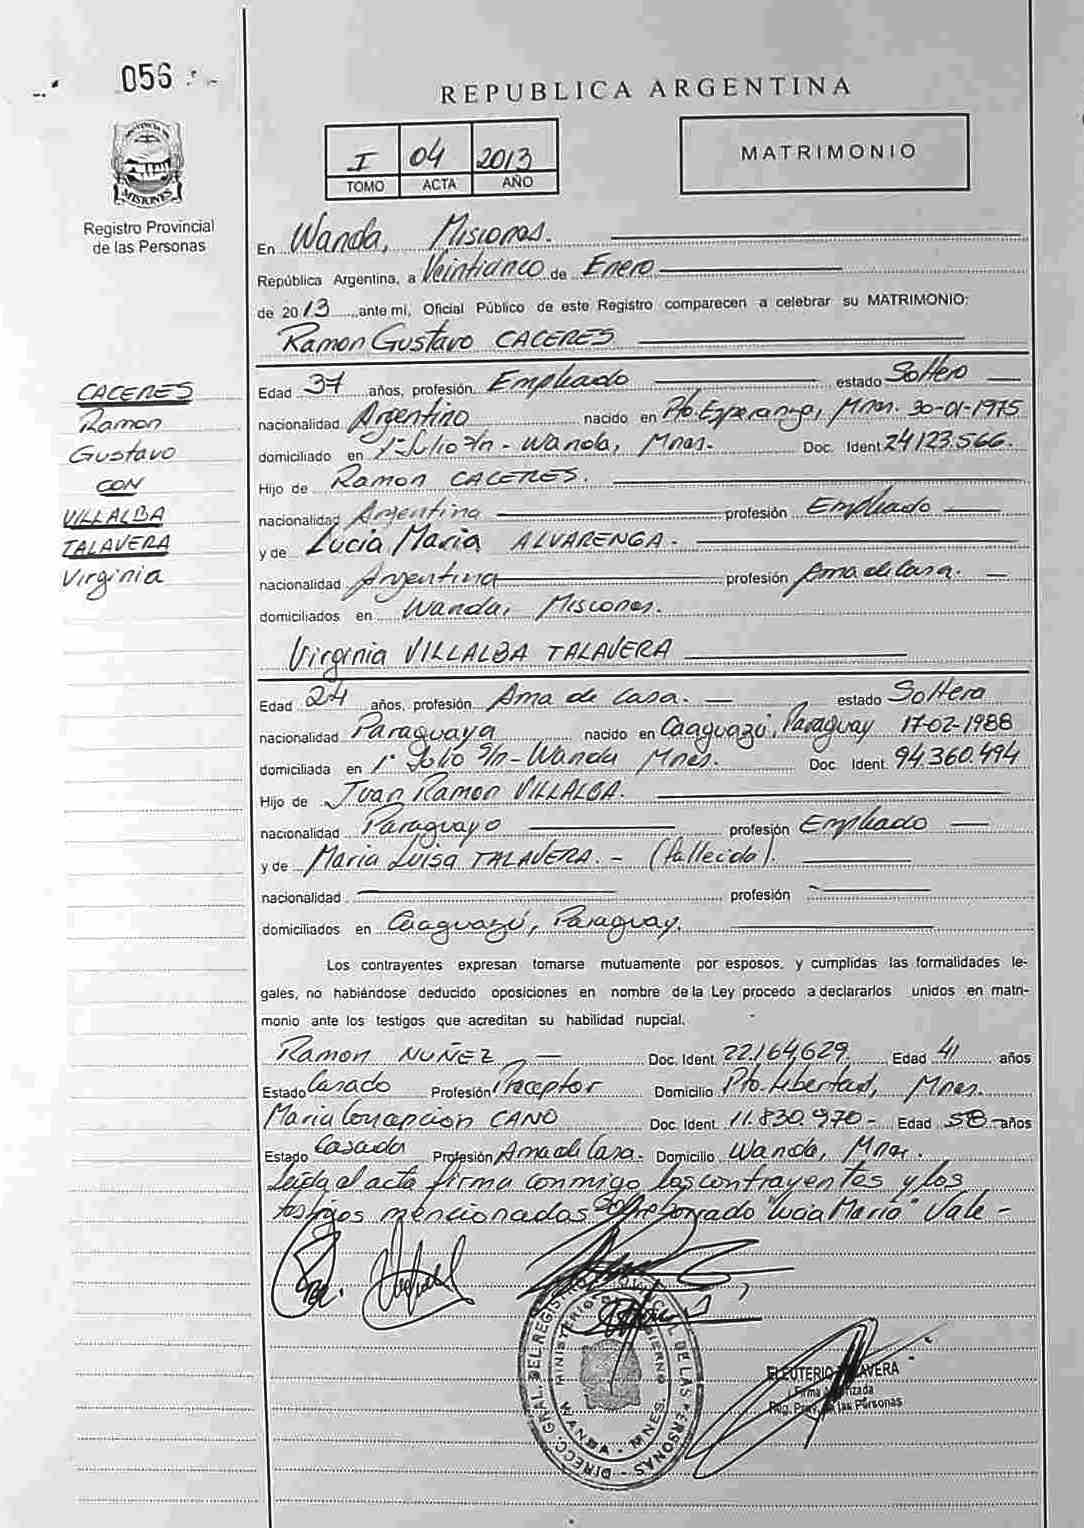 056
REPUBLICA ARGENTINA
PROVINCIA DE
MISIONES
Registro Provincial
de las Personas
I 04 2013
TOMO ACTA AÑO
MATRIMONIO
En Wanda, Misiones.
República Argentina, a Veinticinco de Enero
de 2013 ante mi, Oficial Público de este Registro comparecen a celebrar su MATRIMONIO:
Ramon Gustavo CACERES
CACERES
Ramon
Gustavo
CON
VILLALBA
TALAVERA
Virginia
Edad 37 años, profesión Empleado estado Soltero
nacionalidad Argentino nacido en Pto. Esperanza, Mnes. 30-01-1975
domiciliado en 1º Julio s/n - Wanda, Mnes. Doc. Ident 24123.566.
Hijo de Ramon CACERES.
nacionalidad Argentina profesión Empleado
y de Lucia Maria ALVARENGA.
nacionalidad Argentina profesión Ama de Casa.
domiciliados en Wanda, Misiones.
Virginia VILLALBA TALAVERA
Edad 24 años, profesión Ama de Casa. estado Soltera
nacionalidad Paraguaya nacido en Caaguazú, Paraguay 17-02-1988
domiciliada en 1º Julio s/n - Wanda Mnes. Doc. Ident. 94.360.494
Hijo de Juan Ramon VILLALBA.
nacionalidad Paraguayo profesión Empleado
y de Maria Luisa TALAVERA. - (fallecida).
nacionalidad profesión
domiciliados en Caaguazú, Paraguay.
Los contrayentes expresan tomarse mutuamente por esposos, y cumplidas las formalidades le-
gales, no habiéndose deducido oposiciones en nombre de la Ley procedo a declararlos unidos en matri-
monio ante los testigos que acreditan su habilidad nupcial.
Ramon NUÑEZ Doc. Ident. 22.164.629. Edad 41 años
Estado Casado Profesión Preceptor Domicilio Pto. Libertad, Mnes.
Maria Concepcion CANO Doc. Ident. 11.830.970 - Edad 58 años
Estado Casada Profesión Ama de Casa. Domicilio Wanda, Mnes.
Leida el acta firma conmigo los contrayentes y los
testigos mencionados Sobreborrado "Lucia Maria" Vale -
DIRECC. GRAL. DEL REGISTRO PROVINCIAL DE LAS PERSONAS
MINISTERIO DE GOBIERNO
WANDA - MNES.
ELEUTERIO TALAVERA
Firma Autorizada
Reg. Prov. de las Personas